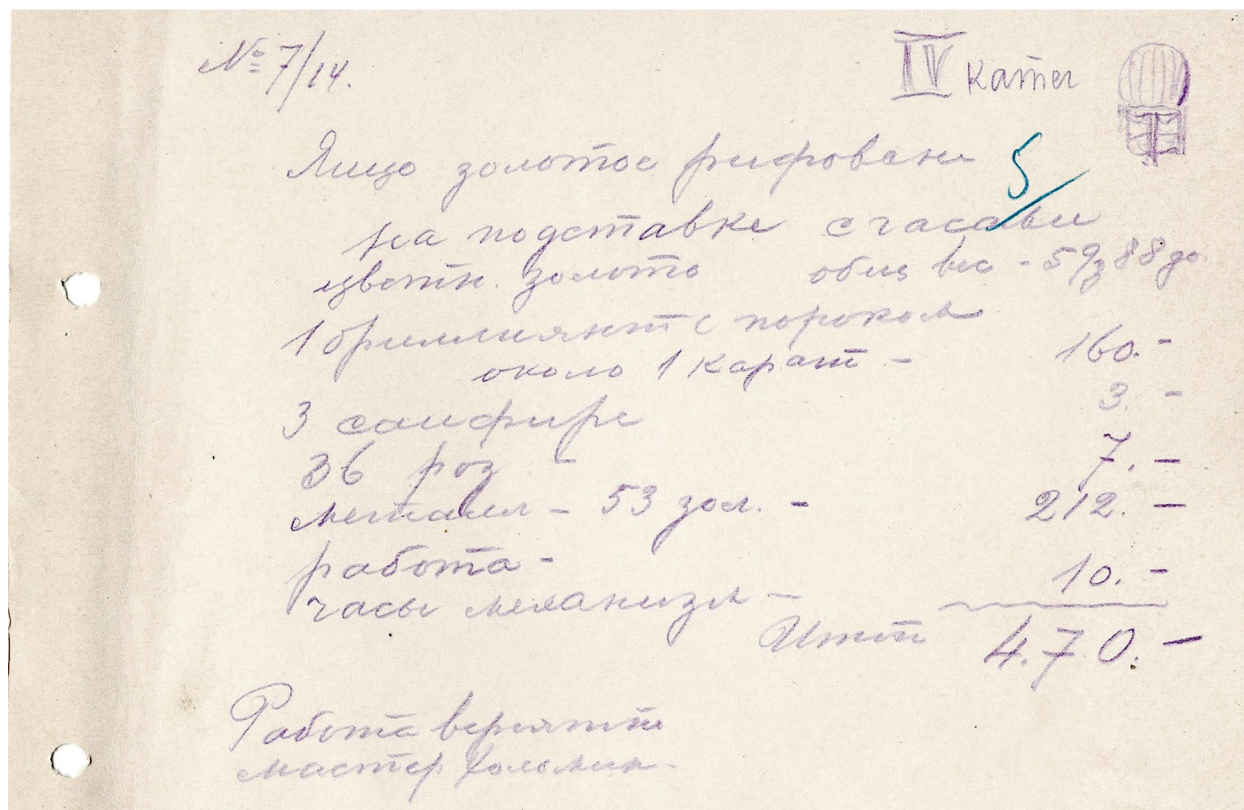 № 7/14.
IV катег
Яицо золотое рифрован
5
на подставке с часами
цветн. золото общ вес - 59з 88 до.
1 бриллиянт с пороком
около 1 карат - 160.-
3 сапфира 3. -
36 роз - 7. -
металл - 53 зол. - 212. -
работа -
часы механизм - 10. -
Итого 470. -
Работа вероятно
мастер